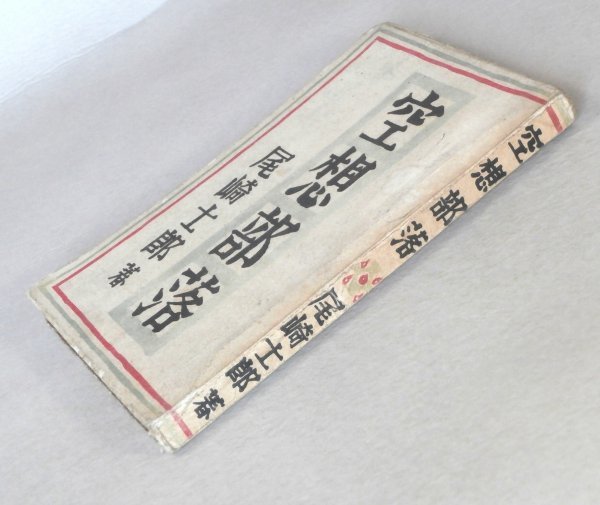 空想部落
尾崎士郎著
空想部落
尾崎士郎著